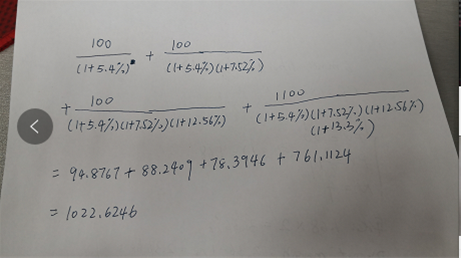 100/(1+5.4%) + 100/(1+5.4%)(1+7.52%)
+ 100/(1+5.4%)(1+7.52%)(1+12.56%) + 1100/(1+5.4%)(1+7.52%)(1+12.56%)(1+13.3%)
= 94.8767 + 88.2409 + 78.3946 + 761.1124
= 1022.6246